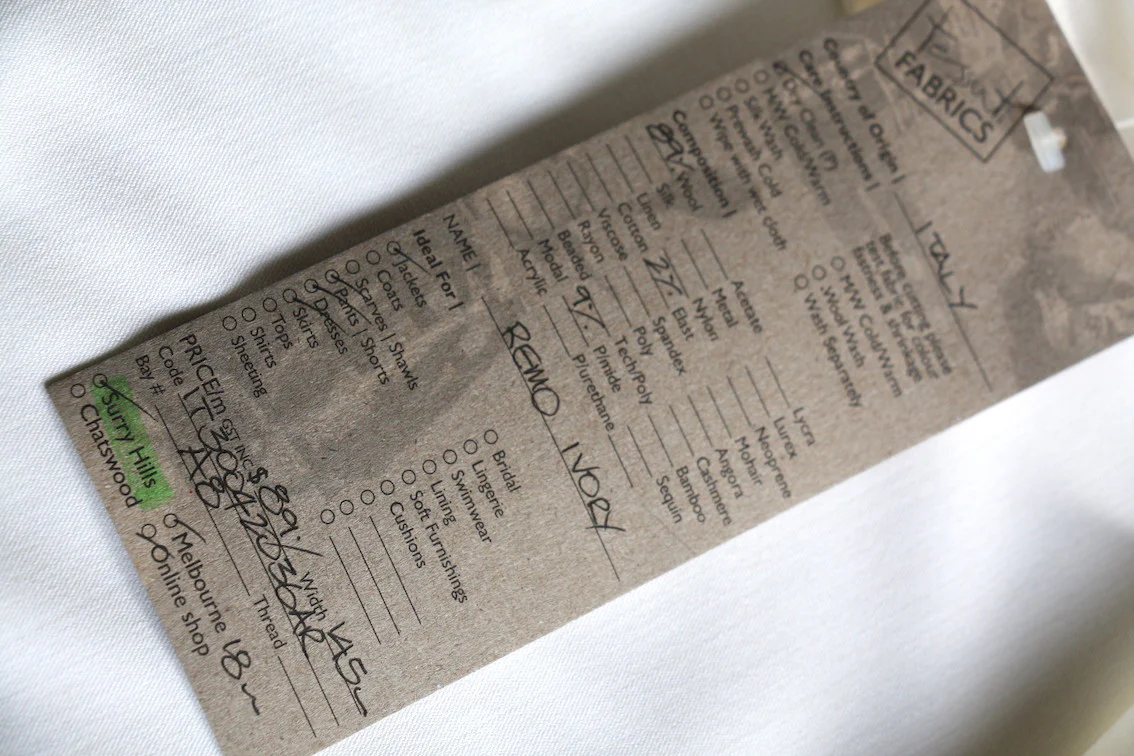 Tessuti
FABRICS
Country of Origin | ITALY
Care Instructions |
Dry Clean (P)
M/W Cold/Warm
Silk Wash
Prewash Cold
Wipe with wet cloth
Before cutting please
test fabric for colour
fastness & shrinkage
M/W Cold/Warm
Wool Wash
Wash Separately
Composition |
89% Wool
Silk
Linen
Cotton
Viscose
Rayon
Beaded
Modal
Acrylic
Acetate
Metal
Nylon
2% Elast
Spandex
Poly
Tech/Poly
9% P/imide
P/urethane
Lycra
Lurex
Neoprene
Mohair
Angora
Cashmere
Bamboo
Sequin
NAME | REMO IVORY
Ideal For |
Jackets
Coats
Scarves | Shawls
Pants | Shorts
Dresses
Skirts
Tops
Shirts
Sheeting
Bridal
Lingerie
Swimwear
Lining
Soft Furnishings
Cushions
PRICE/m GST INC $89./ Width 145
Code
Bay # A8 Thread
Surry Hills
Chatswood
Melbourne 18m
Online shop